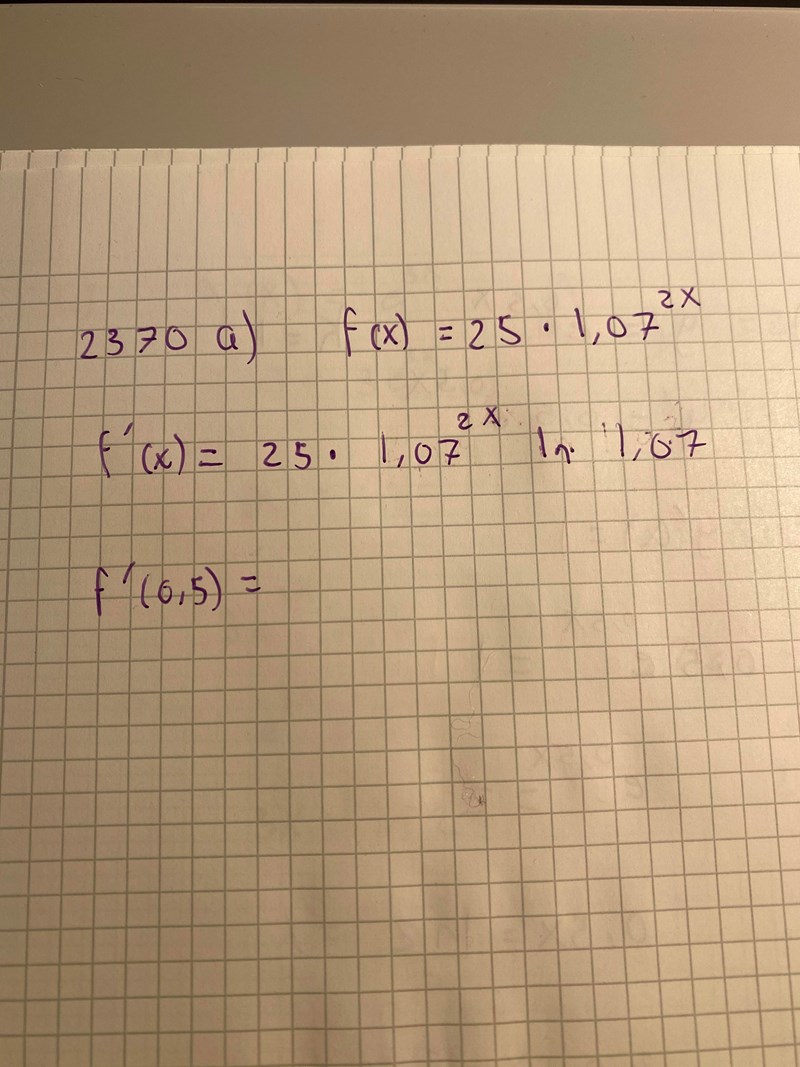 2370 a) f(x) = 25 · 1,07^2x
f'(x) = 25 · 1,07^2x ln 1,07
f'(0,5) =